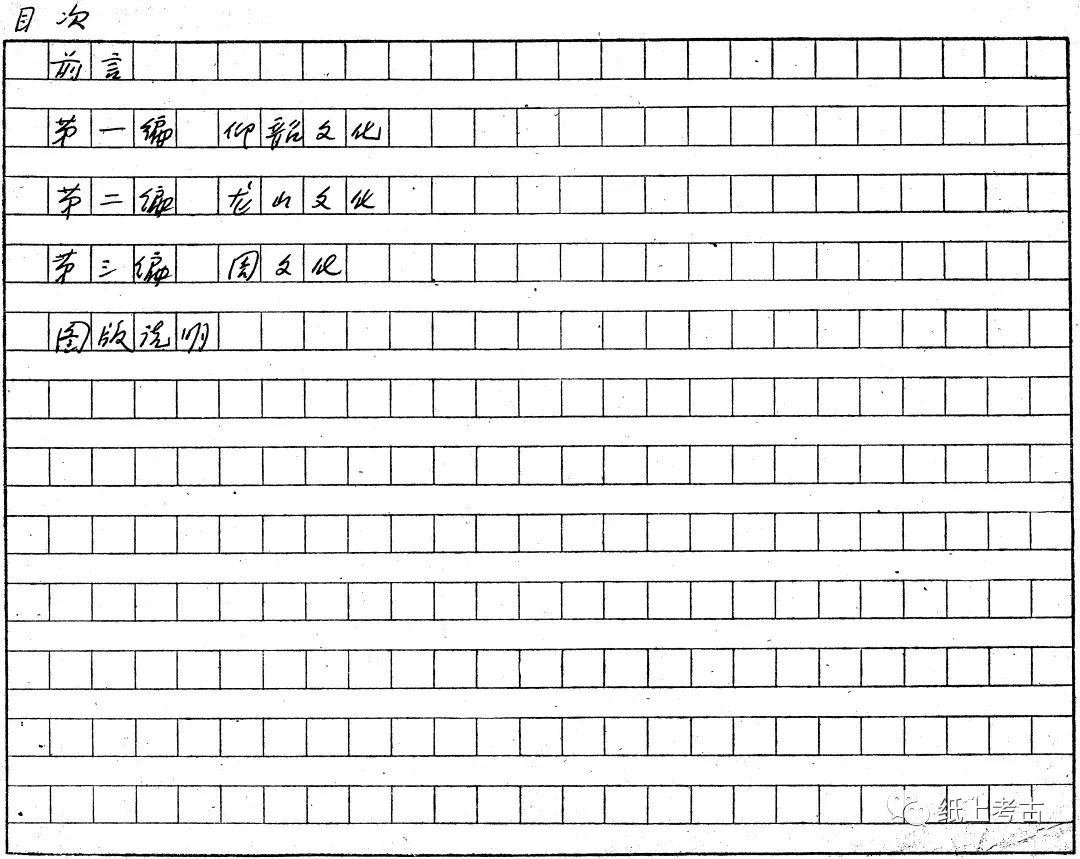 目次
前言
第一编 仰韶文化
第二编 龙山文化
第三编 周文化
图版说明
纸上考古